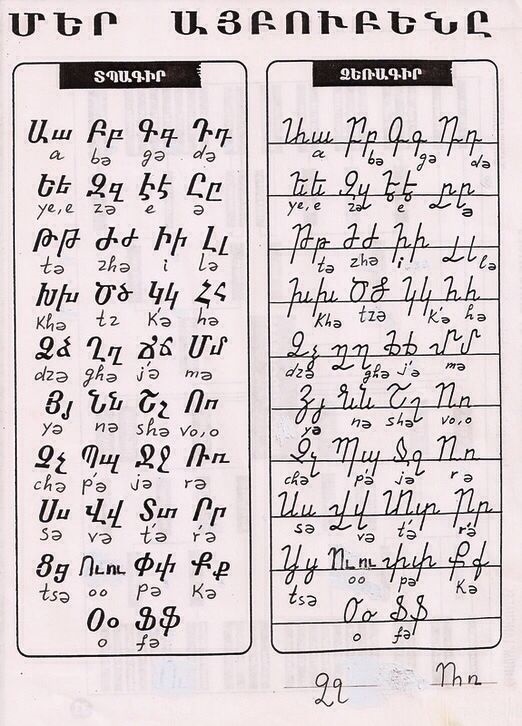 ՄԵՐ ԱՅԲՈՒԲԵՆԸ
ՏՊԱԳԻՐ
Աա Բբ Գգ Դդ
a bə gə də
Եե Զզ Էէ Ըը
ye,e zə e ə
Թթ Ժժ Իի Լլ
tə zhə i lə
Խխ Ծծ Կկ Հհ
Khə tz K'ə hə
Ձձ Ղղ Ճճ Մմ
dzə ghə j'ə mə
Յյ Նն Շշ Ոո
yə nə shə vo,o
Չչ Պպ Ջջ Ռռ
chə p'ə jə rə
Սս Վվ Տտ Րր
sə və t'ə r'ə
Ցց Ուու Փփ Քք
tsə oo pə Kə
Օօ Ֆֆ
o fə
ՁԵՌԱԳԻՐ
Աա Բբ Գգ Դդ
a bə gə də
Եե Զզ Էէ Ըը
ye,e zə e ə
Թթ Ժժ Իի Լլ
tə zhə i lə
Խխ Ծծ Կկ Հհ
Khə tzə K'ə hə
Ձձ Ղղ Ճճ Մմ
dzə ghə j'ə mə
Յյ Նն Շշ Ոո
yə nə shə vo,o
Չչ Պպ Ջջ Ռռ
chə p'ə jə rə
Սս Վվ Տտ Րր
sə və t'ə r'ə
Ցց Ուու Փփ Քք
tsə oo pə Kə
Օօ Ֆֆ
o fə